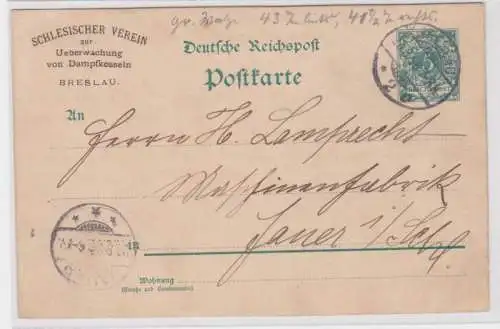 SCHLESISCHER VEREIN
zur
Ueberwachung
von Dampfkesseln
BRESLAU.
Deutsche Reichspost
Postkarte
An
Herrn H. Lamprecht
Maschinenfabrik
in
Jauer i/Schl
Wohnung
(Straße und Hausnummer)